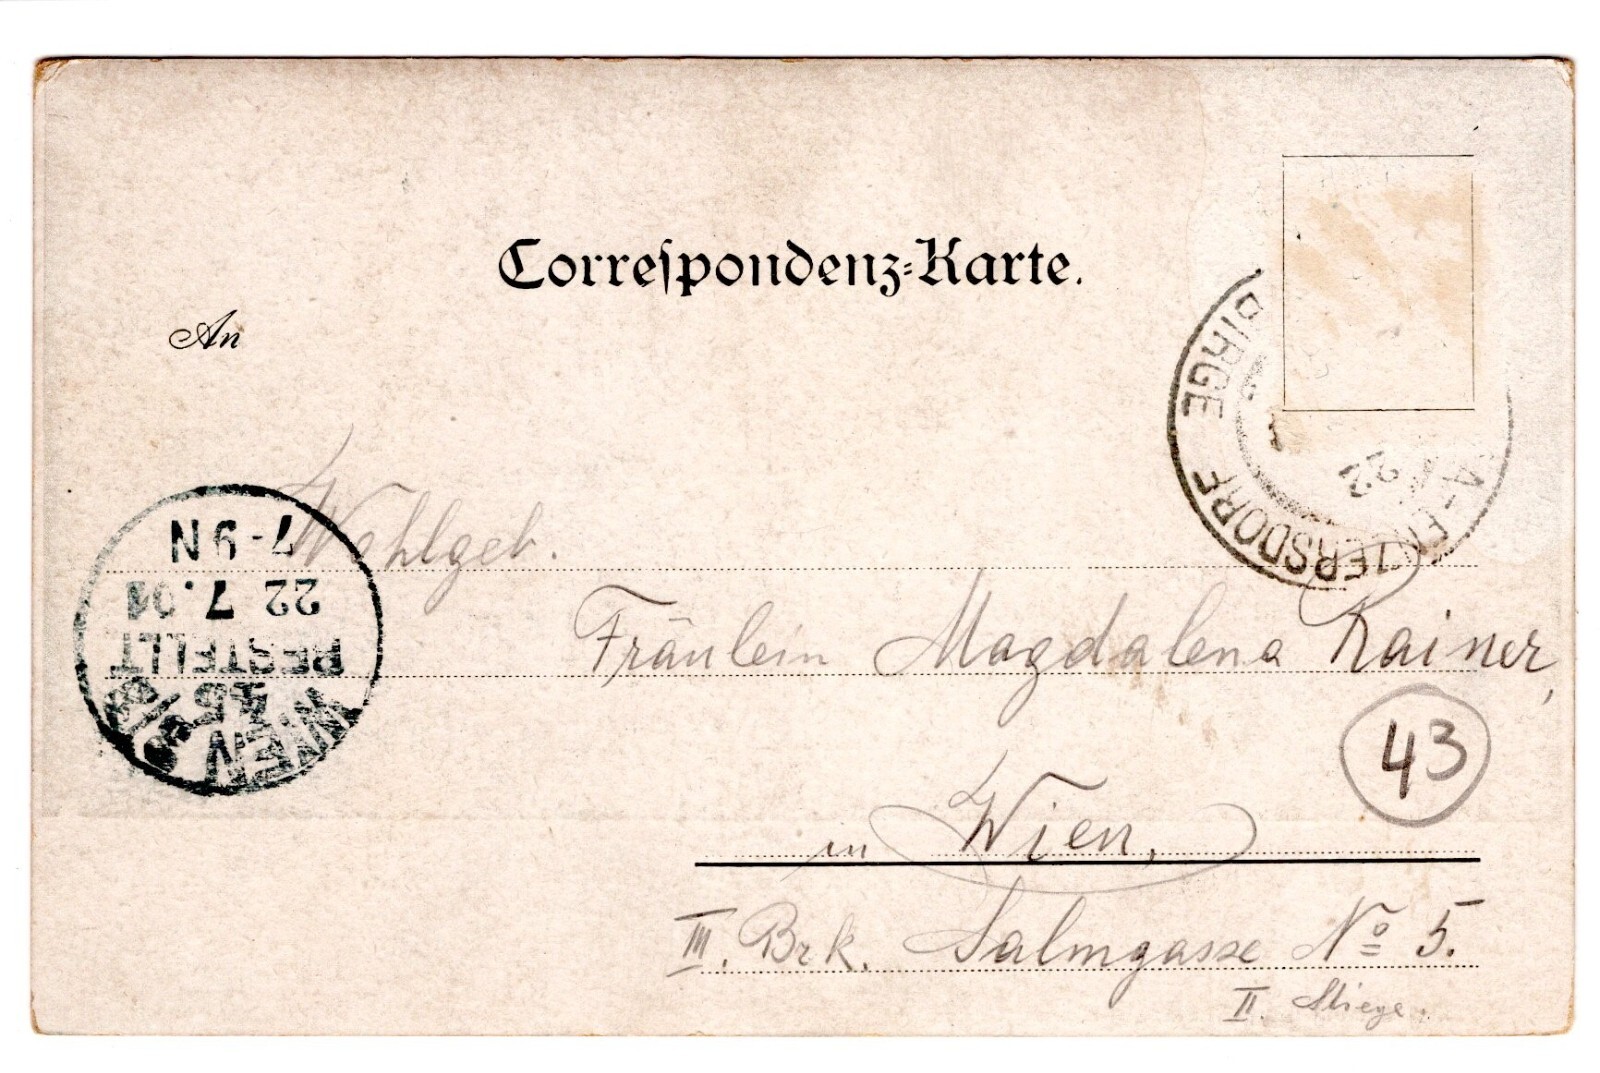 Correspondenz-Karte.
An
Wohlgeb.
Fräulein Magdalena Rainer,
in Wien,
III. Brk. Salmgasse No 5.
II. Stiege.
43
7-9N
22 7.01
BESTELLT
WIEN
ERSDORF
BIRGE
22